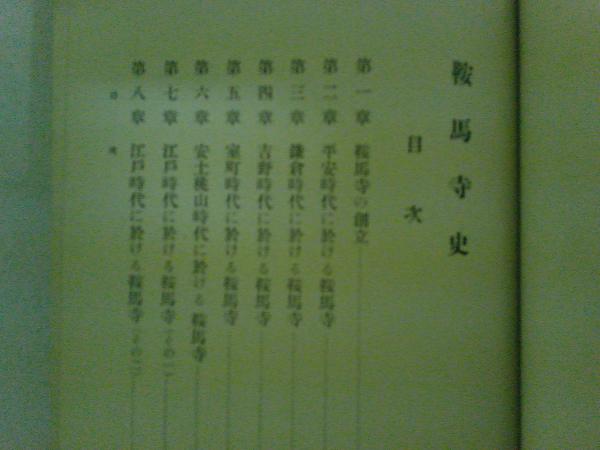 鞍馬寺史
目次
第一章 鞍馬寺の創立
第二章 平安時代に於ける鞍馬寺
第三章 鎌倉時代に於ける鞍馬寺
第四章 吉野時代に於ける鞍馬寺
第五章 室町時代に於ける鞍馬寺
第六章 安土桃山時代に於ける鞍馬寺
第七章 江戸時代に於ける鞍馬寺(その一)
第八章 江戸時代に於ける鞍馬寺(その二)
目次